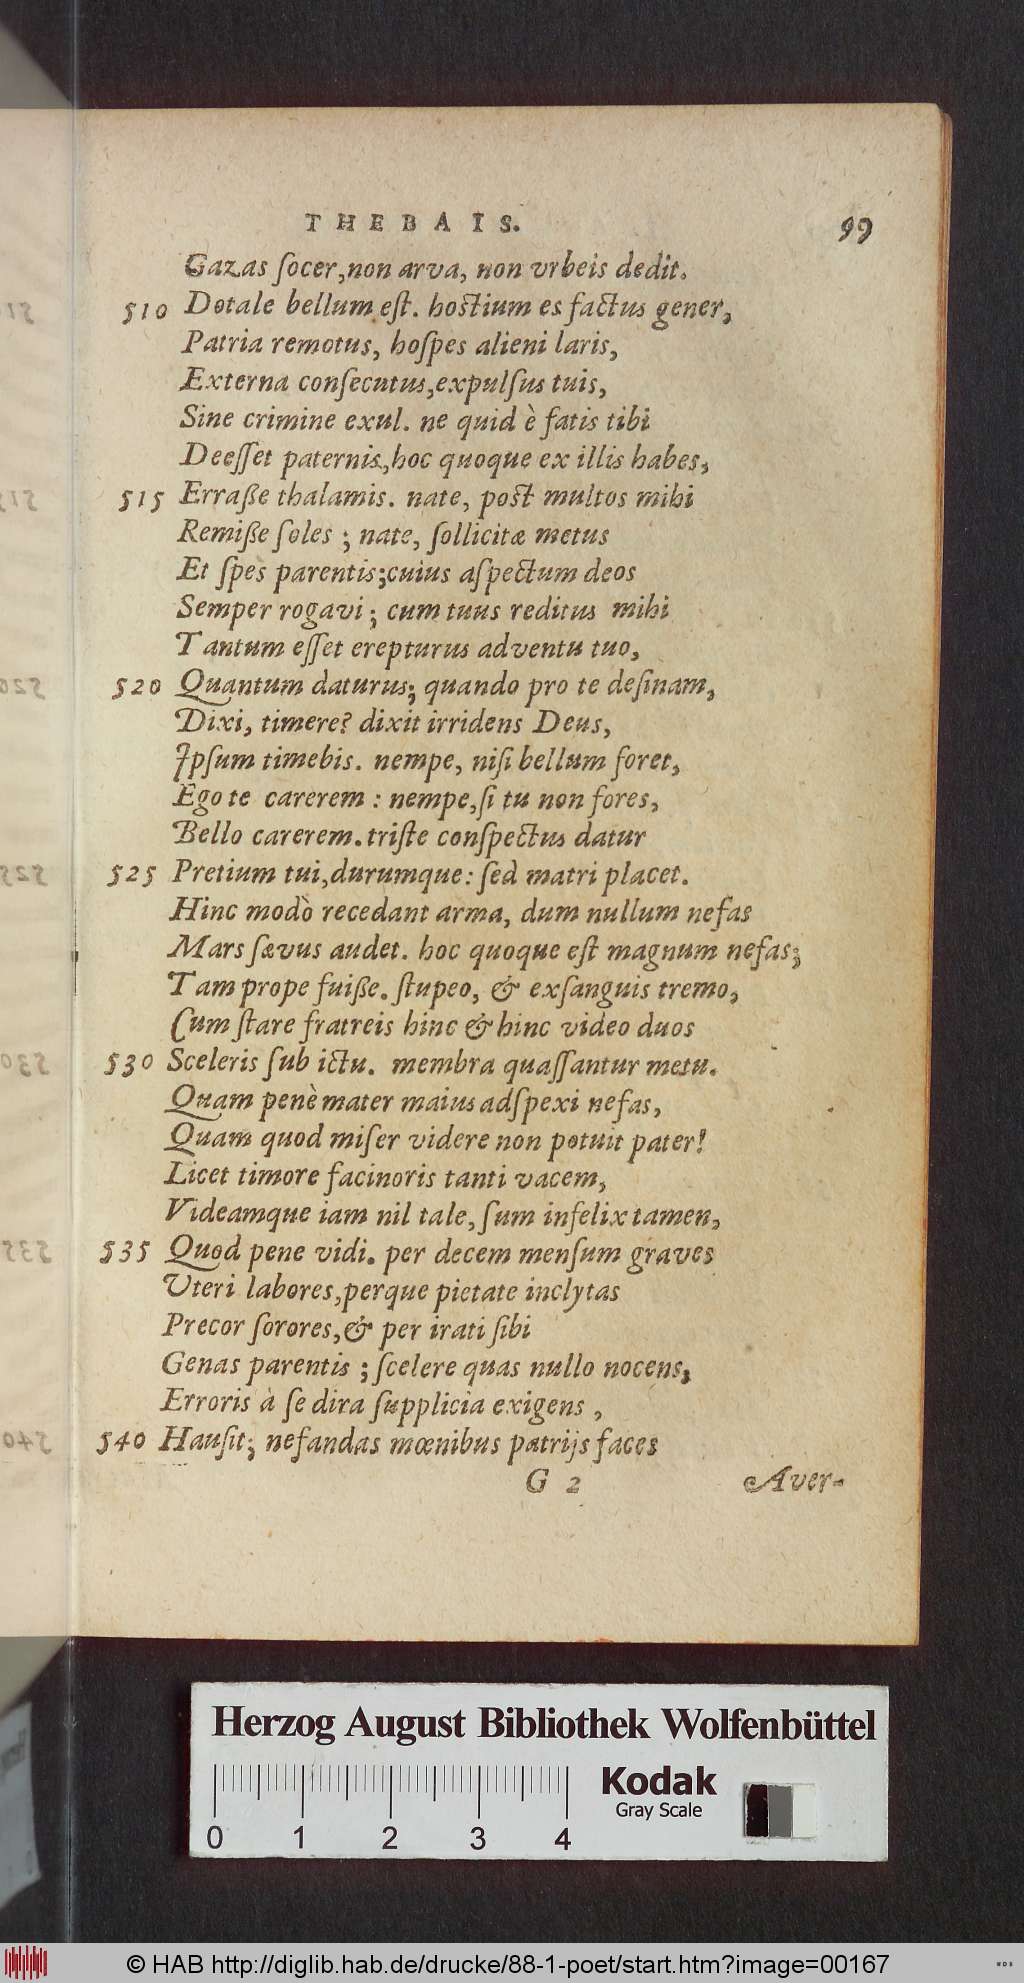 THEBAIS. 99
Gazas ſocer,non arva, non vrbeis dedit.
510 Dotale bellum eſt. hoſtium es factus gener,
Patria remotus, hoſpes alieni laris,
Externa conſecutus,expulſus tuis,
Sine crimine exul. ne quid è fatis tibi
Deeſſet paternis,hoc quoque ex illis habes,
515 Erraße thalamis. nate, poſt multos mihi
Remiße ſoles ; nate, ſollicitæ metus
Et ſpes parentis;cuius aſpectum deos
Semper rogavi ; cum tuus reditus mihi
Tantum eſſet erepturus adventu tuo,
520 Quantum daturus; quando pro te deſinam,
Dixi, timere? dixit irridens Deus,
Ipſum timebis. nempe, niſi bellum foret,
Ego te carerem : nempe,ſi tu non fores,
Bello carerem. triſte conſpectus datur
525 Pretium tui,durumque: ſed matri placet.
Hinc modò recedant arma, dum nullum nefas
Mars ſævus audet. hoc quoque eſt magnum nefas;
Tam prope fuiße. ſtupeo, & exſanguis tremo,
Cum ſtare fratreis hinc & hinc video duos
530 Sceleris ſub ictu. membra quaſſantur metu.
Quam penè mater maius adſpexi nefas,
Quam quod miſer videre non potuit pater!
Licet timore facinoris tanti vacem,
Videamque iam nil tale, ſum infelix tamen,
535 Quod pene vidi. per decem menſum graves
Uteri labores,perque pietate inclytas
Precor ſorores,& per irati ſibi
Genas parentis ; ſcelere quas nullo nocens,
Erroris à ſe dira ſupplicia exigens ,
540 Hauſit; nefandas mœnibus patrijs faces
G 2 Aver-
Herzog August Bibliothek Wolfenbüttel
Kodak
Gray Scale
0 1 2 3 4
© HAB http://diglib.hab.de/drucke/88-1-poet/start.htm?image=00167